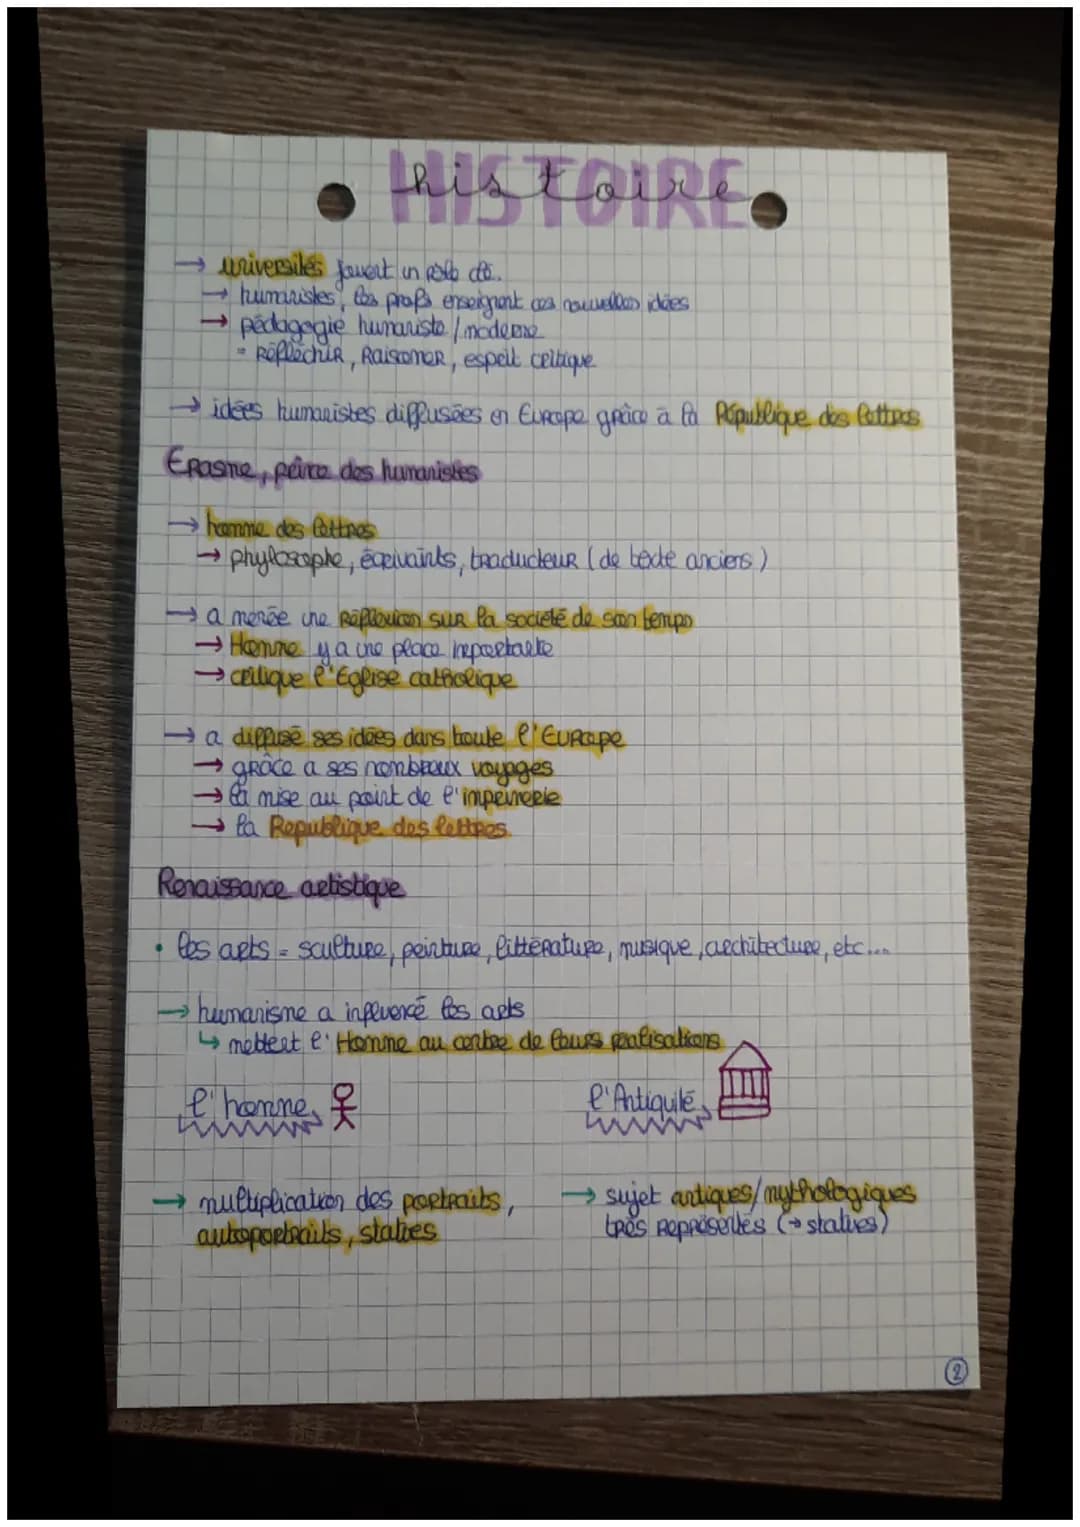 HISTOIRE
histoire
→ universités jouent un rôle clé.
→ humanistes, les profs enseignent ces nouvelles idées
→ pédagogie humaniste / moderne
= Réfléchir, Raisonner, esprit critique
→ idées humanistes diffusées en Europe grâce à la République des lettres
Erasme, prince des humanistes
→ homme des lettres
→ phylosophe, écrivaints, traducteur (de texte anciens)
→ a menée une Réflexion sur la société de son temps
→ Homme y a une place importante
→ critique l'Eglise catholique
→ a diffusé ses idées dans toute l'Europe
→ grâce a ses nombreux voyages
→ la mise au point de l'imprimerie
→ la Republique des lettres
Renaissance artistique
• les arts = sculture, peinture, littérature, musique, architecture, etc...
→ humanisme a influencé les arts
↳ mettent l'Homme au centre de leurs réalisations
l'homme l'Antiquité
→ multiplication des portraits, → sujet antiques/mythologiques
autoportraits, statues très représentés (→ statues)
2